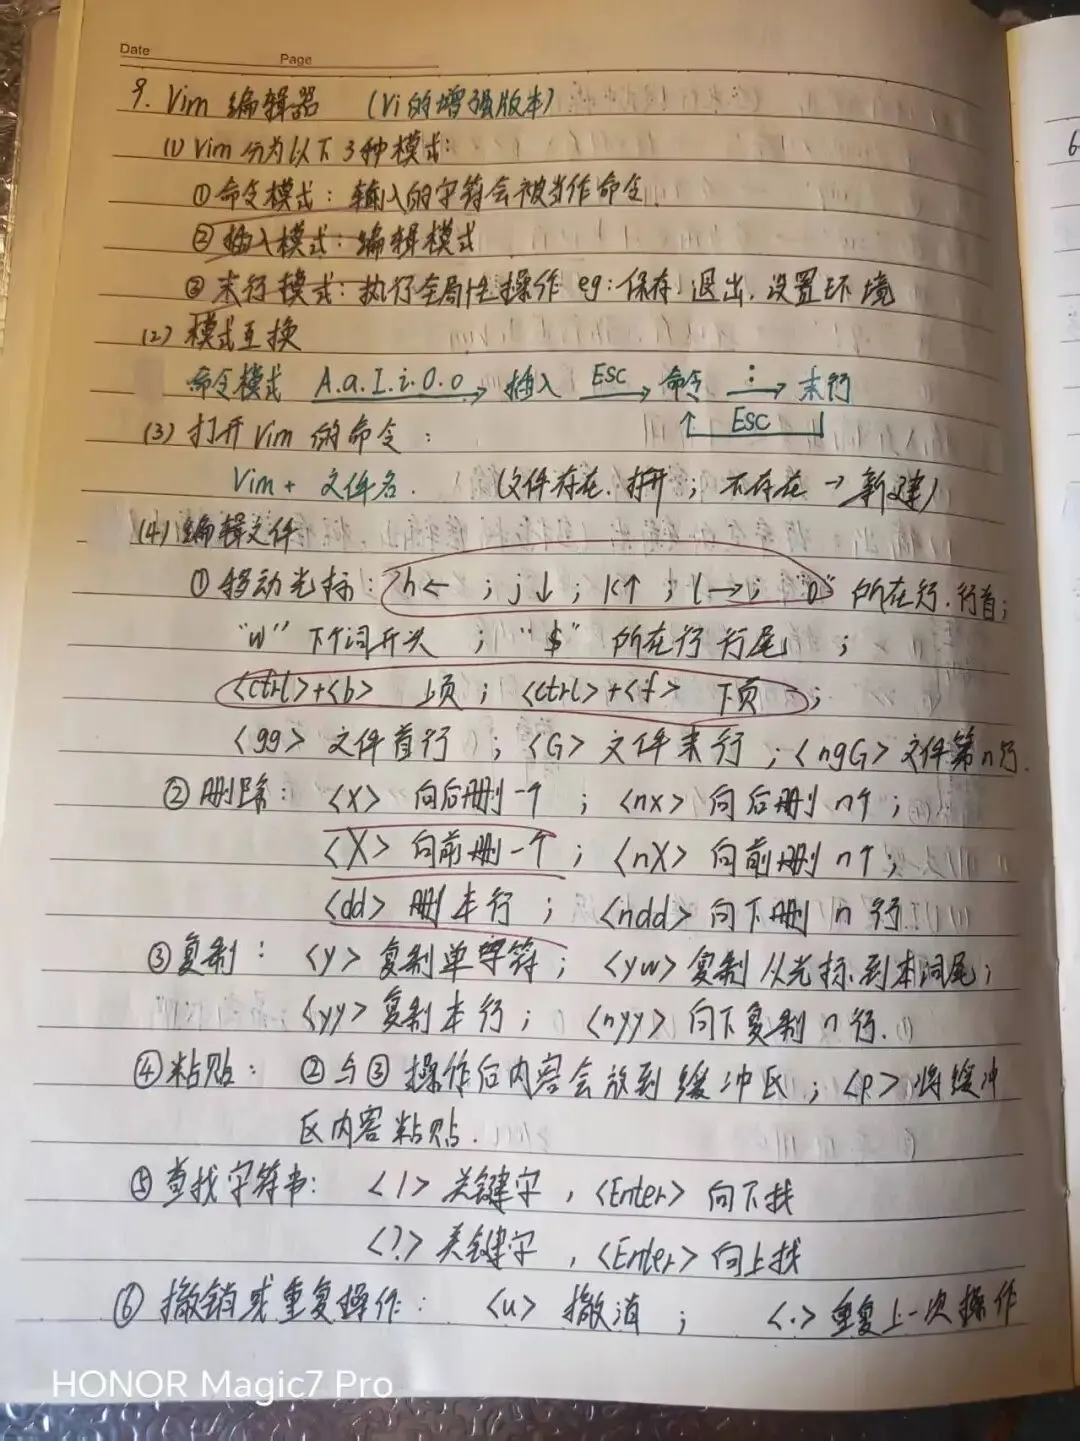 Date
Page
9. Vim 编辑器 (Vi的增强版本)
(1) Vim 分为以下3种模式:
①命令模式: 输入的字符会被当作命令.
②插入模式: 编辑模式
③末行模式: 执行全局性操作 eg: 保存、退出、设置环境
(2) 模式互换
命令模式 A.a.I.i.O.o → 插入 ESC → 命令 : → 末行
ESC
(3) 打开Vim的命令:
Vim + 文件名. (文件存在.打开; 不存在→新建)
(4) 编辑文件
①移动光标: h← ; j↓ ; k↑ ; l→ ; "0" 所在行.行首;
"w" 下个词开头 ; "$" 所在行行尾 ;
<ctrl>+<b> 上页 ; <ctrl>+<f> 下页 ;
<gg> 文件首行 ; <G> 文件末行 ; <ngG> 文件第n行.
②删除: <x> 向后删一个 ; <nx> 向后删n个 ;
<X> 向前删一个 ; <nX> 向前删n个 ;
<dd> 删本行 ; <ndd> 向下删n行
③复制: <y> 复制单字符 ; <yw> 复制从光标到本词尾 ;
<yy> 复制本行 ; <nyy> 向下复制n行.
④粘贴: ②与③操作后内容会放到缓冲区 ; <p> 将缓冲
区内容粘贴.
⑤查找字符串: </> 关键字 , <Enter> 向下找
<?> 关键字 , <Enter> 向上找
⑥撤销或重复操作: <u> 撤消 ; <.> 重复上一次操作
6
HONOR Magic7 Pro